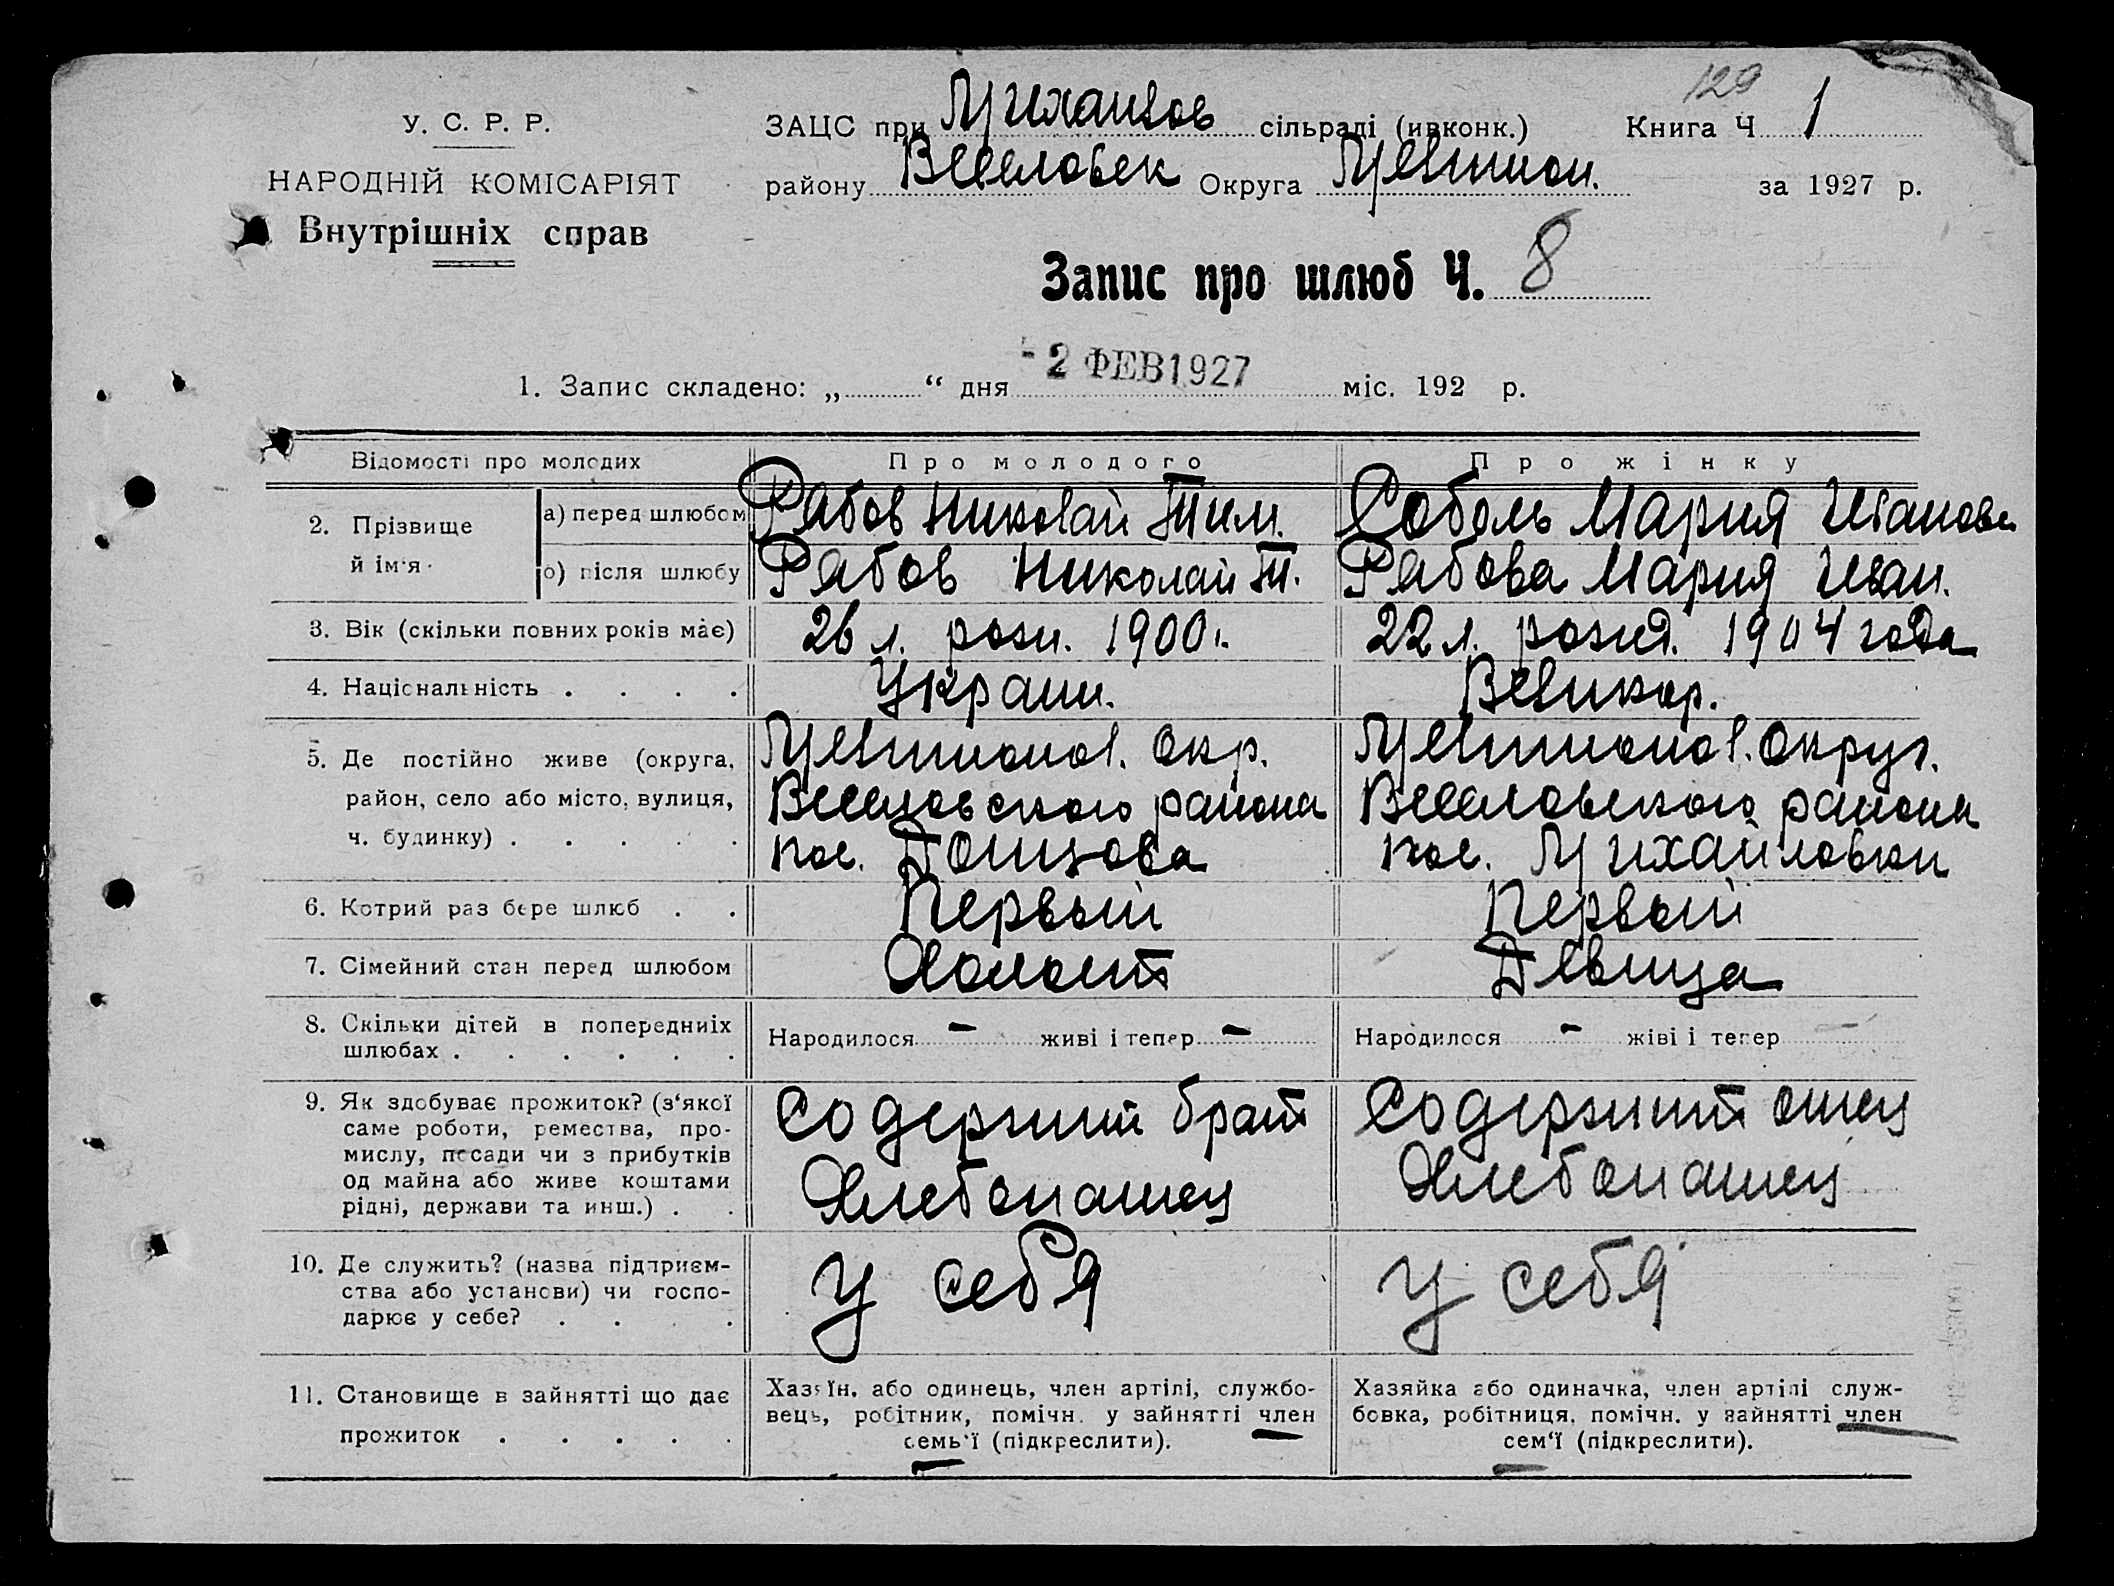 129
У. С. Р. Р.
НАРОДНІЙ КОМІСАРІЯТ
Внутрішніх справ
ЗАЦС при Михайлов сільраді (ивконк.) Книга Ч 1
району Веселовск Округа Мелитоп. за 1927 р.
Запис про шлюб Ч. 8
1. Запис складено: „ “ дня - 2 ФЕВ 1927 міс. 192 р.
Відомості про молодих Про молодого Про жінку
2. Прізвище й ім'я
а) перед шлюбом Рабов Николай Тим. Соболь Мария Иванов
б) після шлюбу Рабов Николай Т. Рабова Мария Иван.
3. Вік (скільки повних років має) 26 л. рожд. 1900 г. 22 л. рожд. 1904 года
4. Національність . . . . Украин. Великор.
5. Де постійно живе (округа, Мелитопол. Окр. Мелитопол. Округ.
район, село або місто, вулиця, Веселовского района Веселовского района
ч. будинку) . . . . . пос. Донцова пос. Михайловки
6. Котрий раз бере шлюб . . Первый Первый
7. Сімейний стан перед шлюбом Холост Девица
8. Скільки дітей в попередниіх Народилося - живі і тепер - Народилося - жіві і тепер
шлюбах . . . . . .
9. Як здобуває прожиток? (з‘якої
саме роботи, ремества, про-
мислу, посади чи з прибутків
од майна або живе коштами
рідні, держави та инш.) . .
Содержит брат
Хлебопашец
Содержит отец
Хлебопашец
10. Де служить? (назва підприєм-
ства або установи) чи госпо-
дарює у себе? . . . .
У себя У себя
11. Становище в зайнятті що дає
прожиток . . . . .
Хазяїн, або одинець, член артілі, службо-
вець, робітник, помічн. у зайнятті член
семь'ї (підкреслити).
Хазяйка або одиначка, член артілі служ-
бовка, робітниця, помічн. у зайнятті член
сем‘ї (підкреслити).